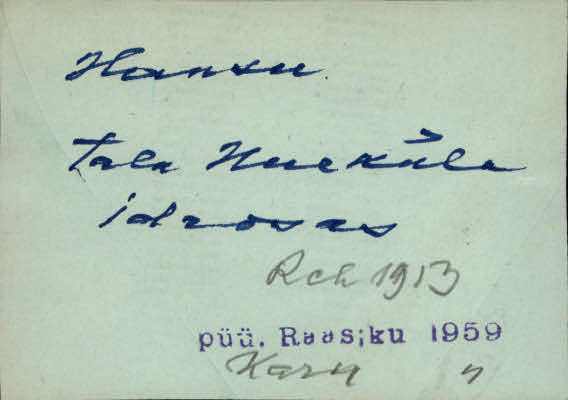 Hansu
talu Hueküla
idaosas
Rch 1913
püü. Raasiku 1959
Karu "